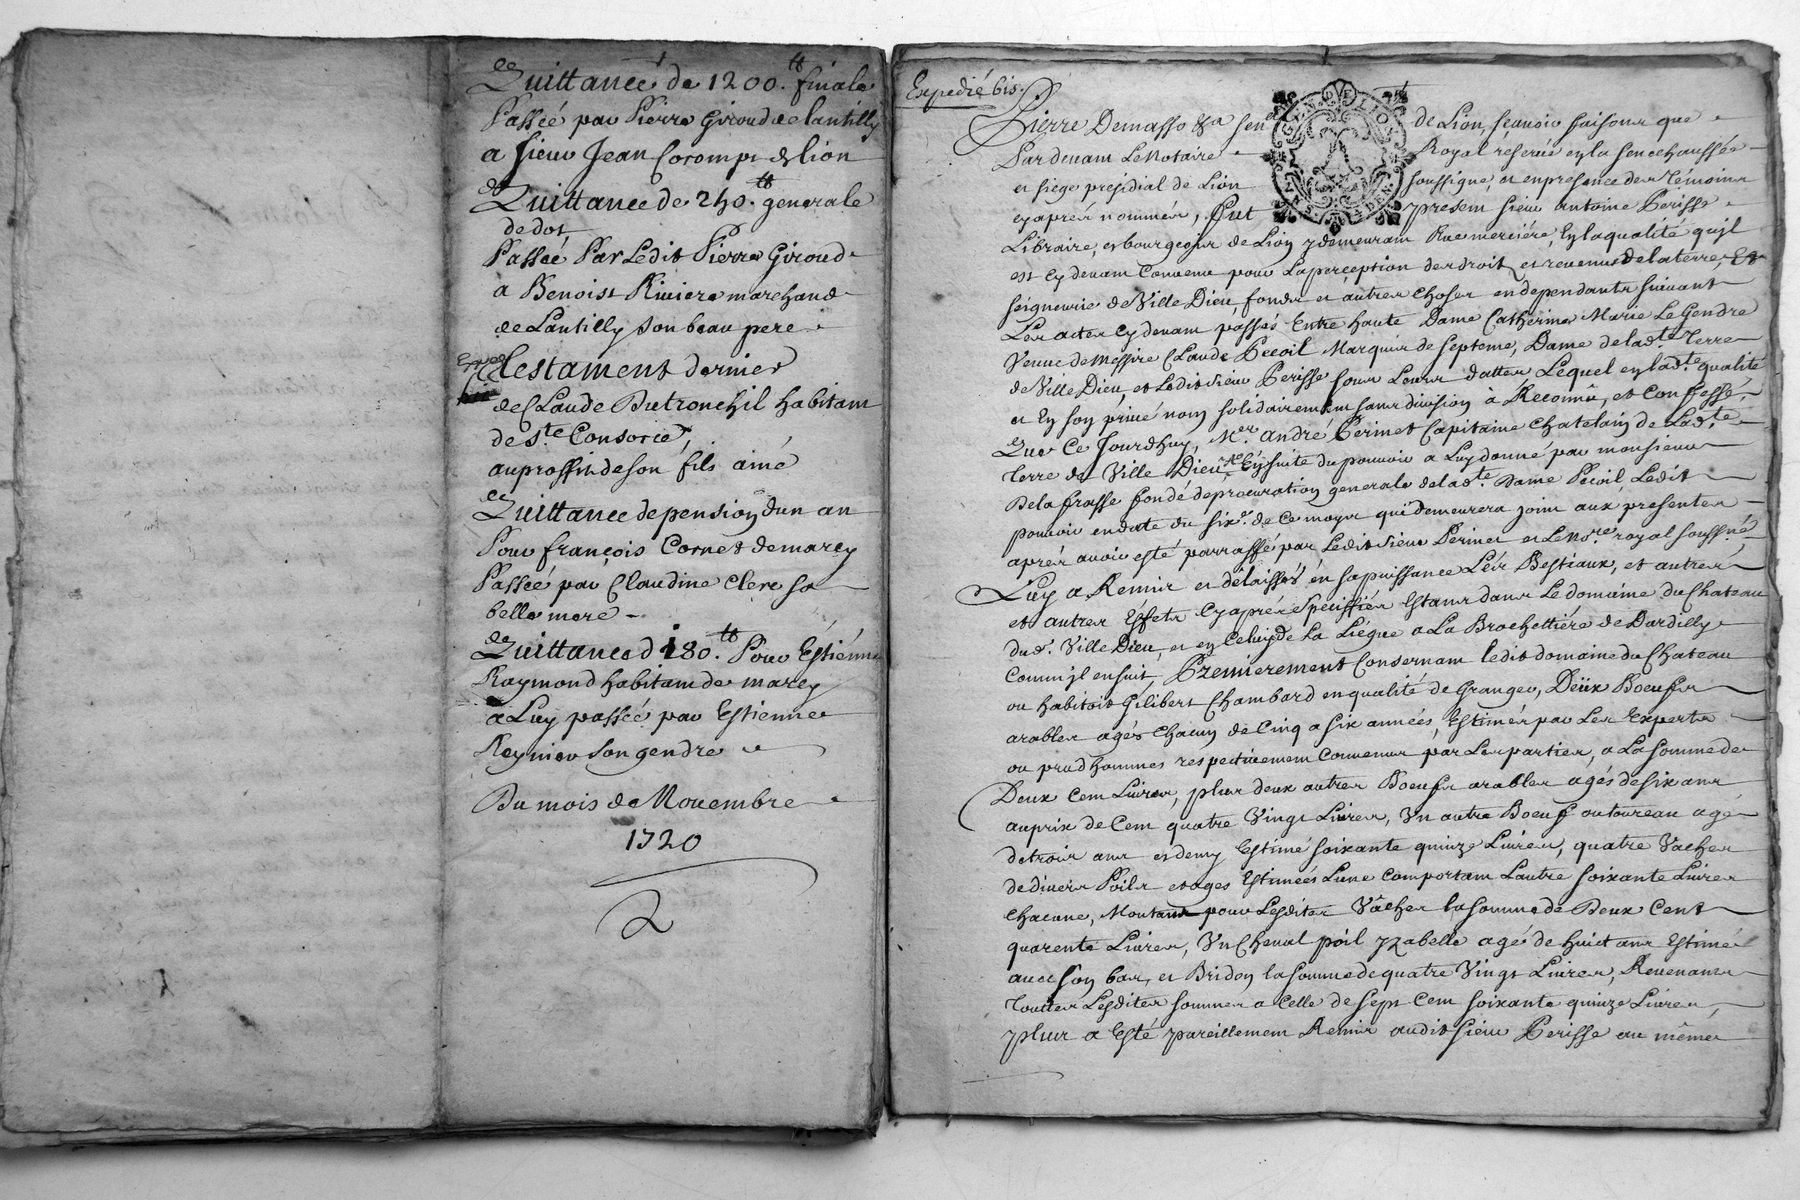 Quittance de 1200.tt finale
Passée par Pierre Giroud de lantilly
a sieur Jean Corompt de lion
Quittance de 240.tt generale
de dot,
Passée Par Ledit Pierre Giroud
a Benoist Riviere marchand
de Lantilly son beau pere
testament dernier
de Claude Dutronchil habitant
de Ste. Consorce,
au proffit de son fils ainé
Quittance de pension dun an
Pour françois Cornet de marcy
Passée par Claudine Clerc sa
belle mere
Quittance d 180.tt Pour Estienne
Raymond habitant de marcy
a Luy passée par Estienne
Reynier son gendre
Du mois de Novembre
1720
2
Expedié bis.
Pierre Demasso &a sen.al de Lion, scavoir faisons que
Par devant Le Notaire Royal reservé en la senechaussée
et siege presidial de Lion soussigné, et en presence des témoins
cy aprés nommés, Fut present sieur antoine Perisse
Libraire, et bourgeois de Lion y demeurant Rue merciére, En la qualité qu'il
est cy devant Convenu pour La perception des droits et revenus de la terre, Et
seigneurie de Ville Dieu, fonds et autres choses en dependants suivant
Les actes cy devant passés Entre haute Dame Catherine Marie Le Gendre
Veuve de Messire Claude Pecoil Marquis de Septeme, Dame de lad.te Terre
de Ville Dieu, et Ledit sieur Perisse sous Leurs dattes Lequel en lad.te qualité
et En son privé nom solidairement sans division à Reconnû, et Confessé,
Que Ce Jourdhuy, Mer. andré Perinet Capitaine Chatelain de Lad.te
terre de Ville Dieu, En suite du pouvoir a Luy donné par monsieur
De la frasse fondé de procuration generale de lad.te Dame Pecoil Ledit
pouvoir en datte du six.e de Ce moys qui demeurera joint aux presentes
aprés avoir esté parraffé par Ledit sieur Perinet et Le No.re royal soussigné
Luy a Remis et délaissés én sa puissance Lés Bestiaux, et autres
et autres Effets Cy aprés Specifiiés Estant dans Le domaine du Chateau
dud. Ville Dieu, et en Celuy de La Liégue a La Brochettiére de Dardilly
Comm jl ensuit, Premierement Consernant ledit domaine du Chateau
ou habitoit Gilibert Chambard en qualité de Granger, Deux Boeufs
arables agés Chacun de Cinq a six années, Estimés par Les Experts
ou prud hommes respectivement Convenus par Les parties, a La somme de
Deux Cent Livres, plus deux autres Boeufs arables agés de six ans
au prix de Cent quatre Vingt Livres, Un autre Boeuf ou toureau agé
de trois ans et demy Estimé soixante quinze Livres, quatre Vaches
de divers Poils et ages Estimées Lune Comportant Lautre soixante Livres
Chacune, Montant pour Lesdites Vâches la somme de Deux Cent
quarente Livres, Un Cheval poil yzabelle agés de huict ans Estimé
avec son bas, et Bridon la somme de quatre Vingt Livres, Revenants
toutes Lesdites sommes a Celle de sept Cent soixante quinze Livres,
plus a Esté pareillement Remis audit sieur Perisse au même